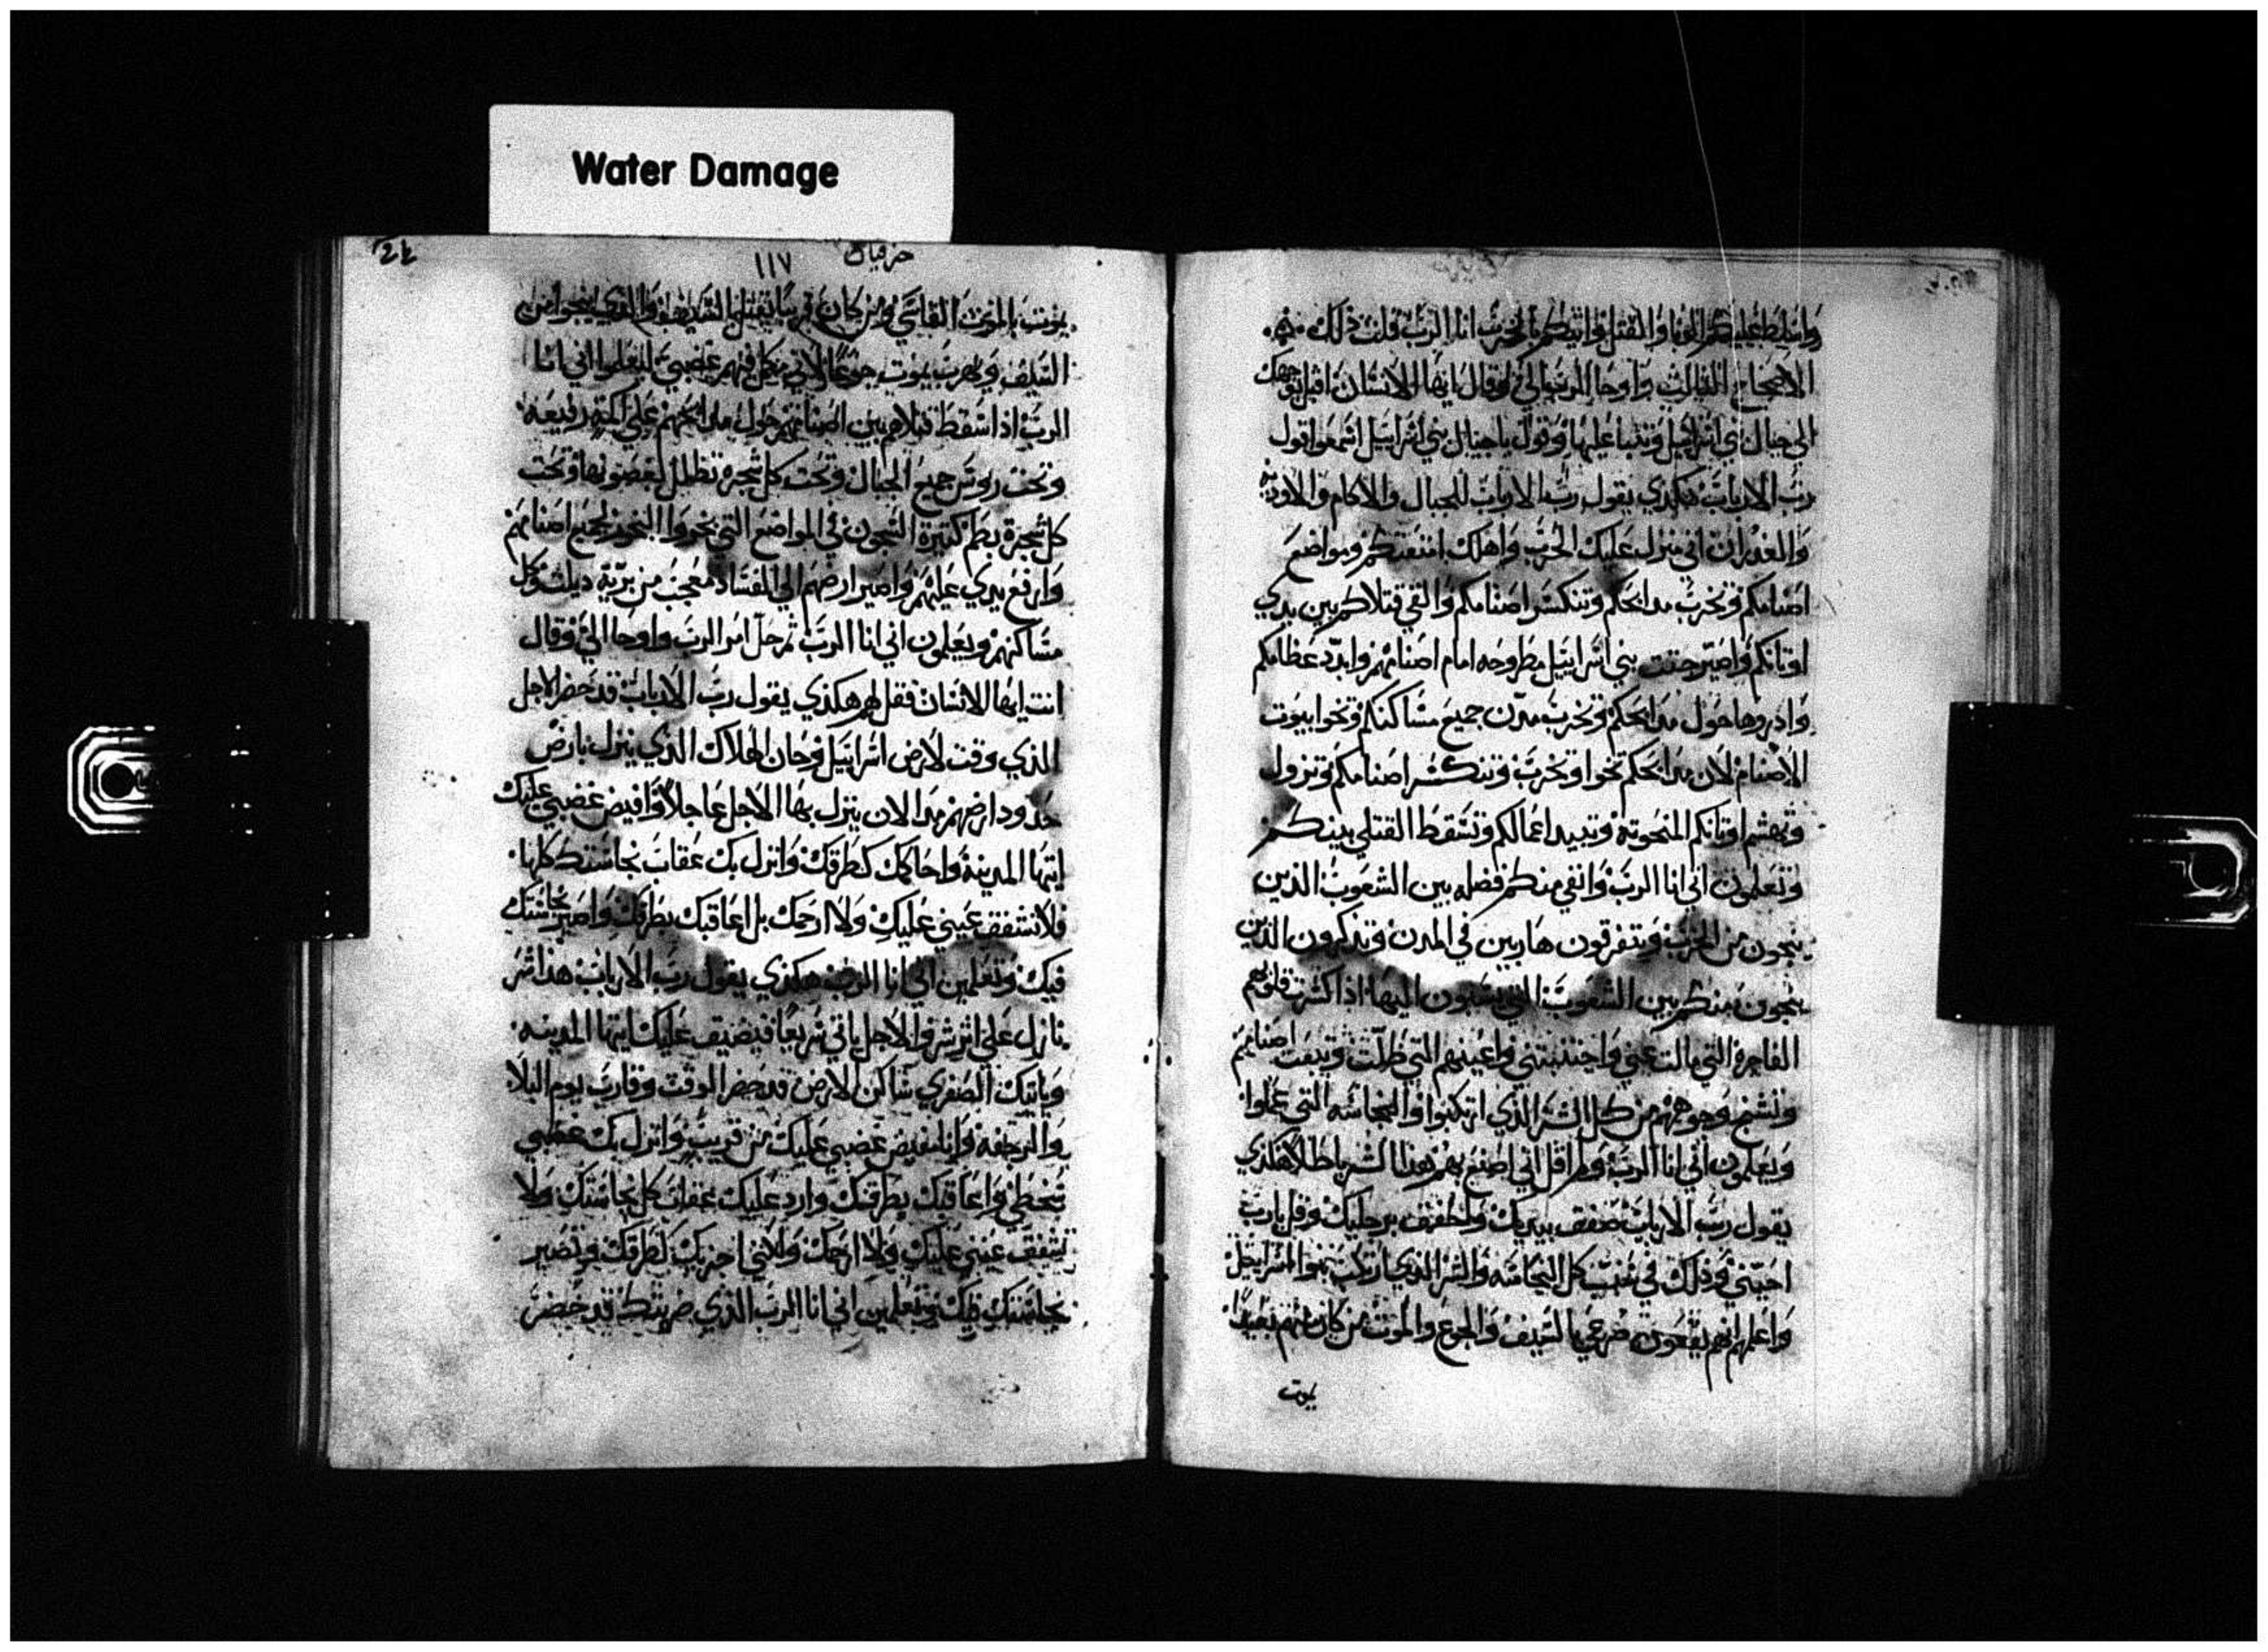 Water Damage
واسلط عليكم الوبا والقتل واتيكم بالحرب انا الرب قلت ذلك
الاصحاح الثالث واوحا الرب الي وقال ايها الانسان اقبل بوجهك
الى جبال بني اسراييل وتنبا عليها وقول يا جبال بني اسراييل اسمعوا قول
رب الارباب هكذي يقول رب الارباب للجبال والاكام والاودية
والغدران اني منزل عليك الحرب واهلك امتعتكم ومواضع
اصنامكم وتخرب مدابحكم وتنكسر اصنامكم والقي قتلاكم بين يدي
اوتانكم واصير جتت بني اسراييل مطروحه امام اصنامهم وابدد عظامكم
واذروها حول مدابحكم وتخرب مدن جميع مساكنكم وتخوا بيوت
الاصنام لان مدابحكم تخوا وتخرب وتنكسر اصنامكم وتزول
وتهشم اوتانكم المنحوتة وتبيد اعمالكم وتسقط القتلي بينكم
وتعلمون اني انا الرب وابقي منكم فضله بين الشعوب الذين
ينجون من الحرب ويتفرقون هاربين في المدن وتذكرون الذين
ينجون منكم بين الشعوب التي يسبون اليها اذا كسرت قلوبهم
الفاجرة التي مالت عني واجتنبتني واعينهم التي ظلت وتبعت اصنامهم
وتسمج وجوههم من كل الشر الذي ارتكبوا والنجاسه التي عملوا
ويعلمون اني انا الرب ولم اقل اني اصنع بهم هذا الشر باطلا هكذي
يقول رب الارباب صفق بيديك واطفق برجليك وقل يا رب
كل النجاسه والشر الذي ارتكب بنوا اسراييل
واعلمهم انهم يقعون صرعي بالسيف والجوع والموت من كان منهم بعيدا
يموت
حزقيال
١١٧
يموت بالموت القاسي ومن كان قريبا يقتل بالسيف والذي ينجوا من
السيف ويهرب يموت جوعا لاني مكمل فيهم غضبي ليعلموا اني انا
الرب اذا اسقط قتلاهم بين اصنامهم حول مدابحهم علي اكمة رفيعه
وتحت روس جميع الجبال وتحت كل شجرة تظلل بغصونها وتحت
كل شجرة بطم كثيرة الغصون في المواضع التي بخروا البخور لجميع اصنامهم
وارفع يدي عليهم واصير ارضهم الي الفساد معجب من برية ديلث وكل
مساكنهم ويعلمون اني انا الرب ثم حل امر الرب واوحا الي وقال
انت ايها الانسان فقل لهم هكذي يقول رب الارباب قد حضر الاجل
الذي وقت لارض اسراييل وحان الهلاك الذي ينزل بارض
حدود ارضهم مدا الان ينزل بها الاجل عاجلا وافيض غضبي عليك
ايتها المدينه واحاكمك كطرقك وانزل بك عقاب نجاستك كلها
فلا تشفق عيني عليك ولا ارحمك بل اعاقبك بطرقك واصير نجاستك
فيك وتعلمين اني انا الرب هكذي يقول رب الارباب هذا شر
نازل علي اثر شر والاجل ياتي سريعا فيضيق عليك ايتها المدينه
وياتيك الصفري ساكن الارض قد حضر الوقت وقارب يوم البلا
والرجفة وانا مفيض غضبي عليك من قريب وانزل بك غضبي
سخطي واعاقبك بطرقك وارد عليك عقاب كل نجاستك ولا
تشفق عيني عليك ولا ارحمك ولاني اجزيك كطرقك وتصير
نجاستك فيك وتعلمين اني انا الرب الذي ضربتك قد حضر